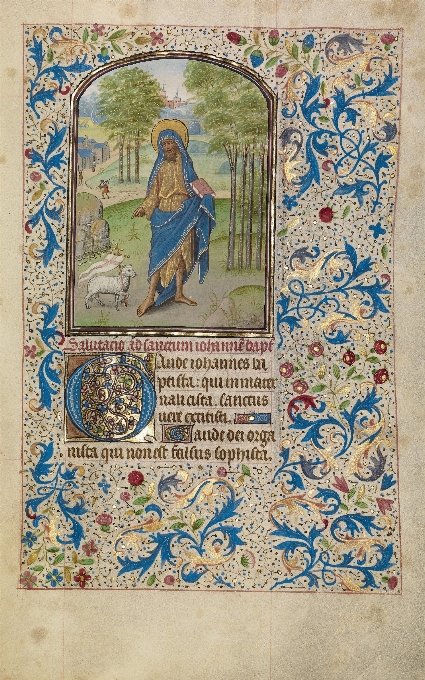 Salutacio ad sanctum iohannē bapt̄
Gaude iohannes ba
ptista: qui in mater
nali cista. sanctus
uere extitisti.
Gaude dei orga
nista qui non est falsus sophista.